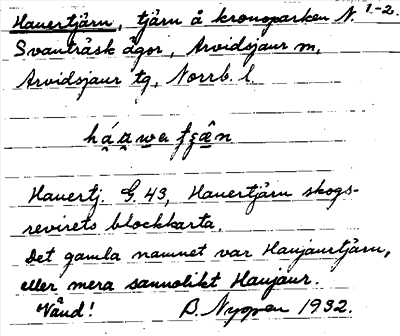 Hauertjärn, tjärn å kronoparken N. 1-2.
Svanträsk ägor, Arvidsjaur sn,
Arvidsjaur tg, Norrb. l.
Hauertj. G. 43, Hauertjärn skogs-
revirets blockkarta.
Det gamla namnet var Haujaurtjärn,
eller mera sannolikt Haujaur.
Vänd! B. Nygren 1932.